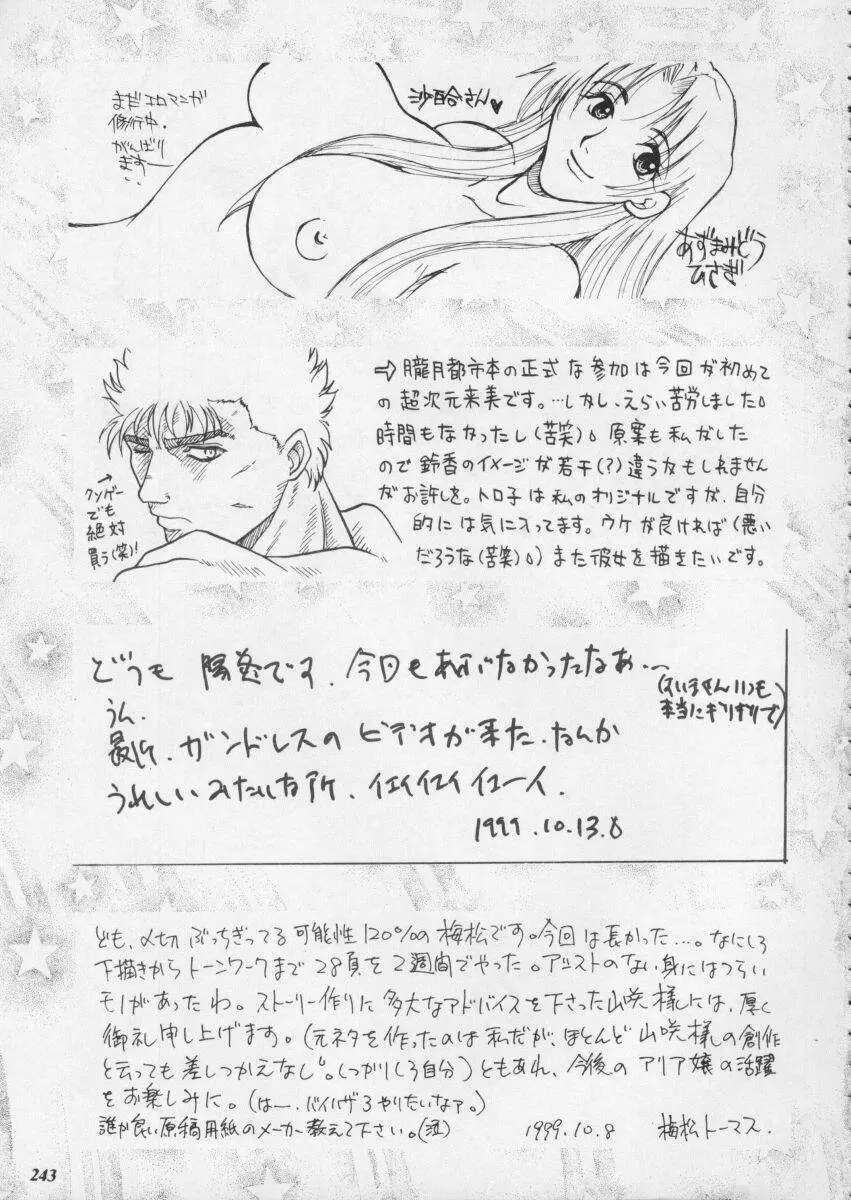 まだエロマンガ
修行中.
がんばり
ますー
沙百合さん♥
あずまみどう
ひさぎ
⇒朧月都市本の正式な参加は今回が初めて
の超次元来美です。…しかし、えらい苦労しました。
時間もなかったし(苦笑)。原案も私がした
ので鈴香のイメージが若干(?)違うかもしれません
がお許しを。トロ子は私のオリジナルですが、自分
的には気に入ってます。ウケが良ければ(悪い
だろうな(苦笑)。)また彼女を描きたいです。
→
クソゲー
でも
絶対
買う(笑)!
どうも 陽炎です. 今回もあぶなかったなぁ…
(すいませんいつも
本当にギリギリで)
うん.
最近. ガンドレスのビデオが来た. なんか
うれしいみたいな所.
1999.10.13.8
ども、〆切ぶっちぎってる可能性120%の梅松です。今回は長かった…。なにしろ
下描きからトーンワークまで28頁を2週間でやった。アシストのない身にはつらい
モノがあったわ。ストーリー作りに多大なアドバイスを下さった山咲様には、厚く
御礼申し上げます。(元ネタを作ったのは私だが、ほとんど山咲様の創作
と云っても差しつかえなし。しっかりしろ自分)ともあれ、今後のアリア嬢の活躍
をお楽しみに。(はー、バイハザ3やりたいなァ。)
誰か良い原稿用紙のメーカー教えて下さい。(泣) 1999.10.8 梅松トーマス.
243